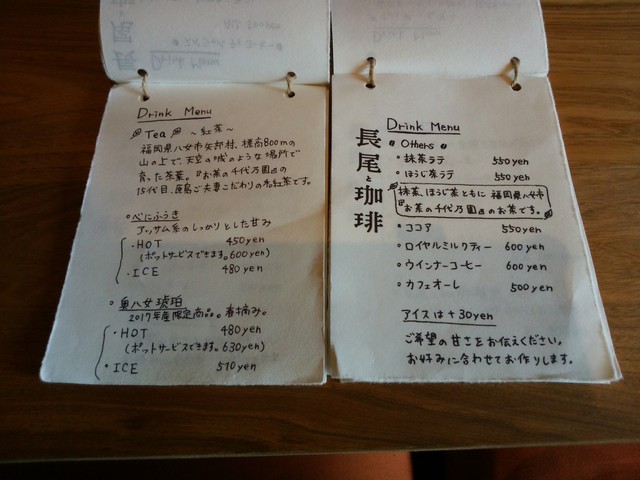 Drink Menu
Tea ～紅茶～
福岡県八女市矢部村、標高800mの
山の上で、天空の城のような場所で
育った茶葉。『お茶の千代乃園』の
15代目、原島ご夫妻こだわりの和紅茶です。
べにふうき
アッサム系のしっかりとした甘み
・HOT 450yen
(ポットサービスできます。600yen)
・ICE 480yen
奥八女琥珀
2017年産限定商品。春摘み。
・HOT 480yen
(ポットサービスできます。630yen)
・ICE 510yen
長尾と珈琲
Drink Menu
Others
・抹茶ラテ 550yen
・ほうじ茶ラテ 550yen
抹茶、ほうじ茶ともに 福岡県八女市
『お茶の千代乃園』のお茶です。
・ココア 550yen
・ロイヤルミルクティー 600yen
・ウインナーコーヒー 600yen
・カフェオーレ 500yen
アイスは+30yen
ご希望の甘さをお伝えください。
お好みに合わせてお作りします。